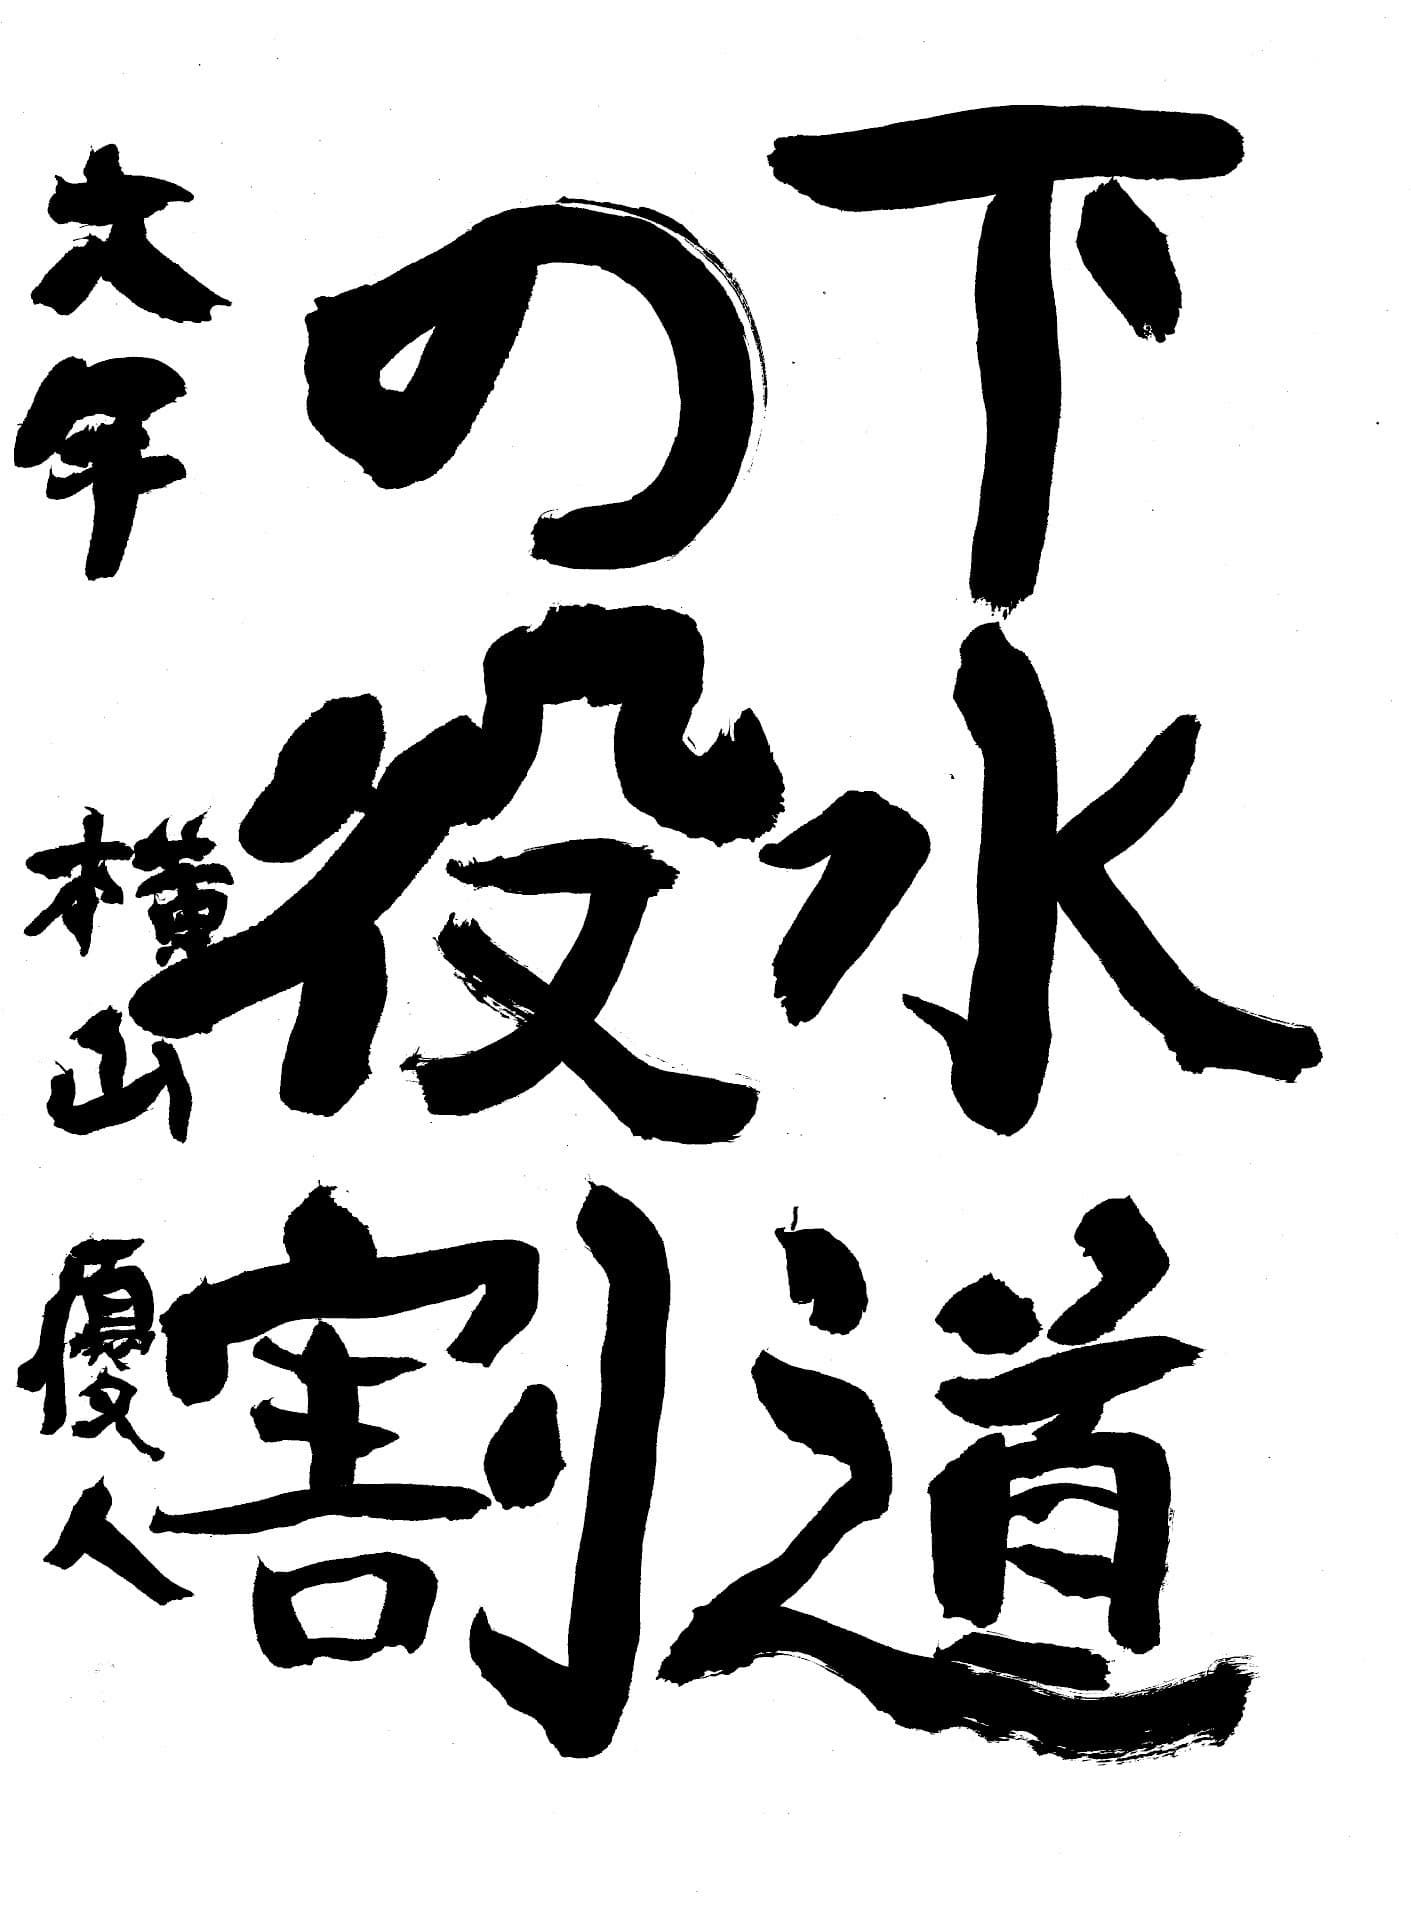 下水道
の役割
六年 横山優人